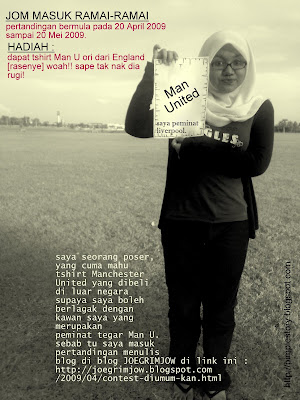 JOM MASUK RAMAI-RAMAI
pertandingan bermula pada 20 April 2009
sampai 20 Mei 2009.
HADIAH :
dapat tshirt Man U ori dari England
[rasenye] woah!! sape tak nak dia
rugi!
Man
United
saya peminat
liverpool.
saya seorang poser,
yang cuma mahu
tshirt Manchester
United yang dibeli
di luar negara
supaya saya boleh
berlagak dengan
kawan saya yang
merupakan
peminat tegar Man U.
sebab tu saya masuk
pertandingan menulis
blog di blog JOEGRIMJOW di link ini :
http://joegrimjow.blogspot.com
/2009/04/contest-diumum-kan.html